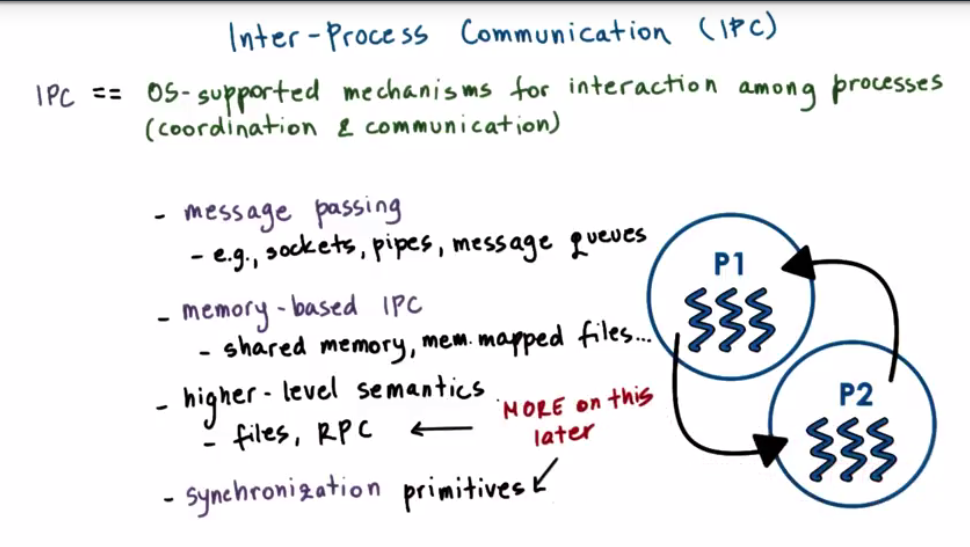 Inter-Process Communication (IPC)
IPC == OS-supported mechanisms for interaction among processes
(coordination & communication)
- message passing
- e.g., sockets, pipes, message queues
- memory-based IPC
- shared memory, mem. mapped files...
- higher-level semantics
- files, RPC ←
MORE on this
later
- synchronization primitives ↙
P1
P2